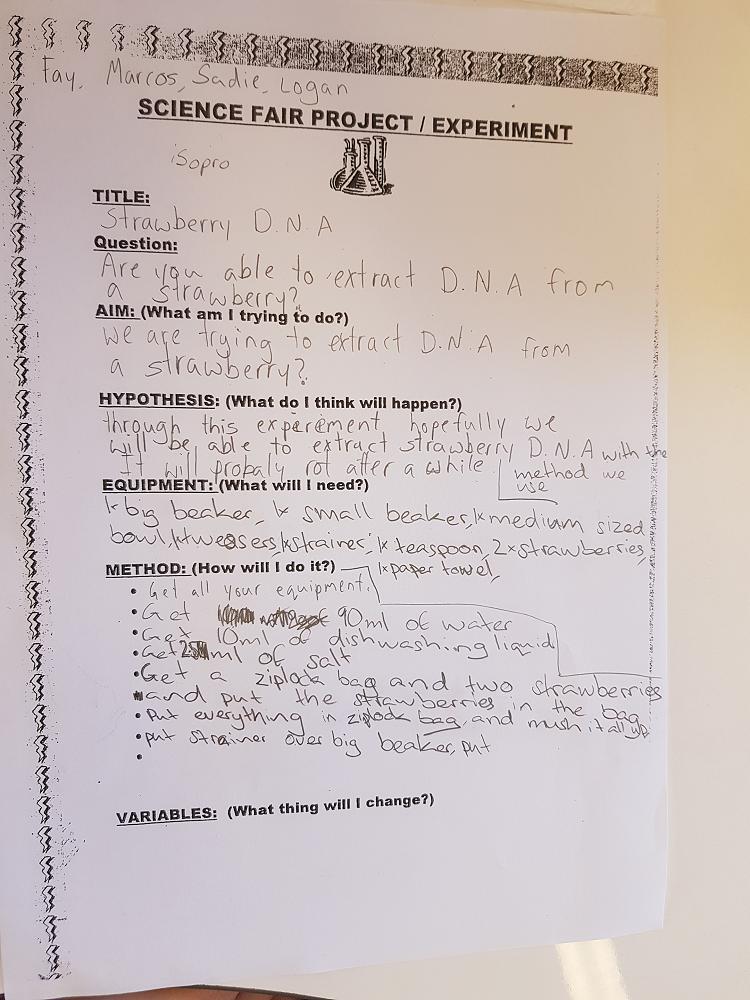 Fay, Marcos, Sadie, Logan
SCIENCE FAIR PROJECT / EXPERIMENT
isopro
TITLE:
Strawberry D.N.A
Question:
Are you able to extract D.N.A from
a strawberry?
AIM: (What am I trying to do?)
we are trying to extract D.N.A from
a strawberry?
HYPOTHESIS: (What do I think will happen?)
through this experement hopefully we
will be able to extract strawberry D.N.A with the
method we
use
It will probaly rot after a while.
EQUIPMENT: (What will I need?)
1x big beaker, 1x small beaker, 1x medium sized
bowl, 1x tweasers, 1x strainer, 1x teaspoon, 2x strawberries,
1x paper towel,
METHOD: (How will I do it?)
• Get all your equipment.
• Get 90ml of water
• Get 10ml of dishwashing liquid
• Get ml of salt
• Get a ziplock bag and two strawberries
and put the strawberries in the bag
• Put everything in ziplock bag and mush it all up
• put strainer over big beaker, put
•
VARIABLES: (What thing will I change?)